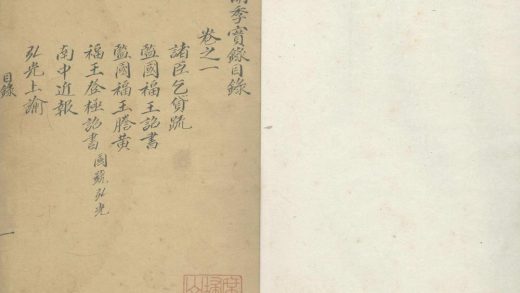 明季實錄目錄
卷之一
諸臣乞貸疏
監國福王詔書
監國福王謄黄
福王登極詔書 國號弘光
南中近報
弘光上諭
目錄 一